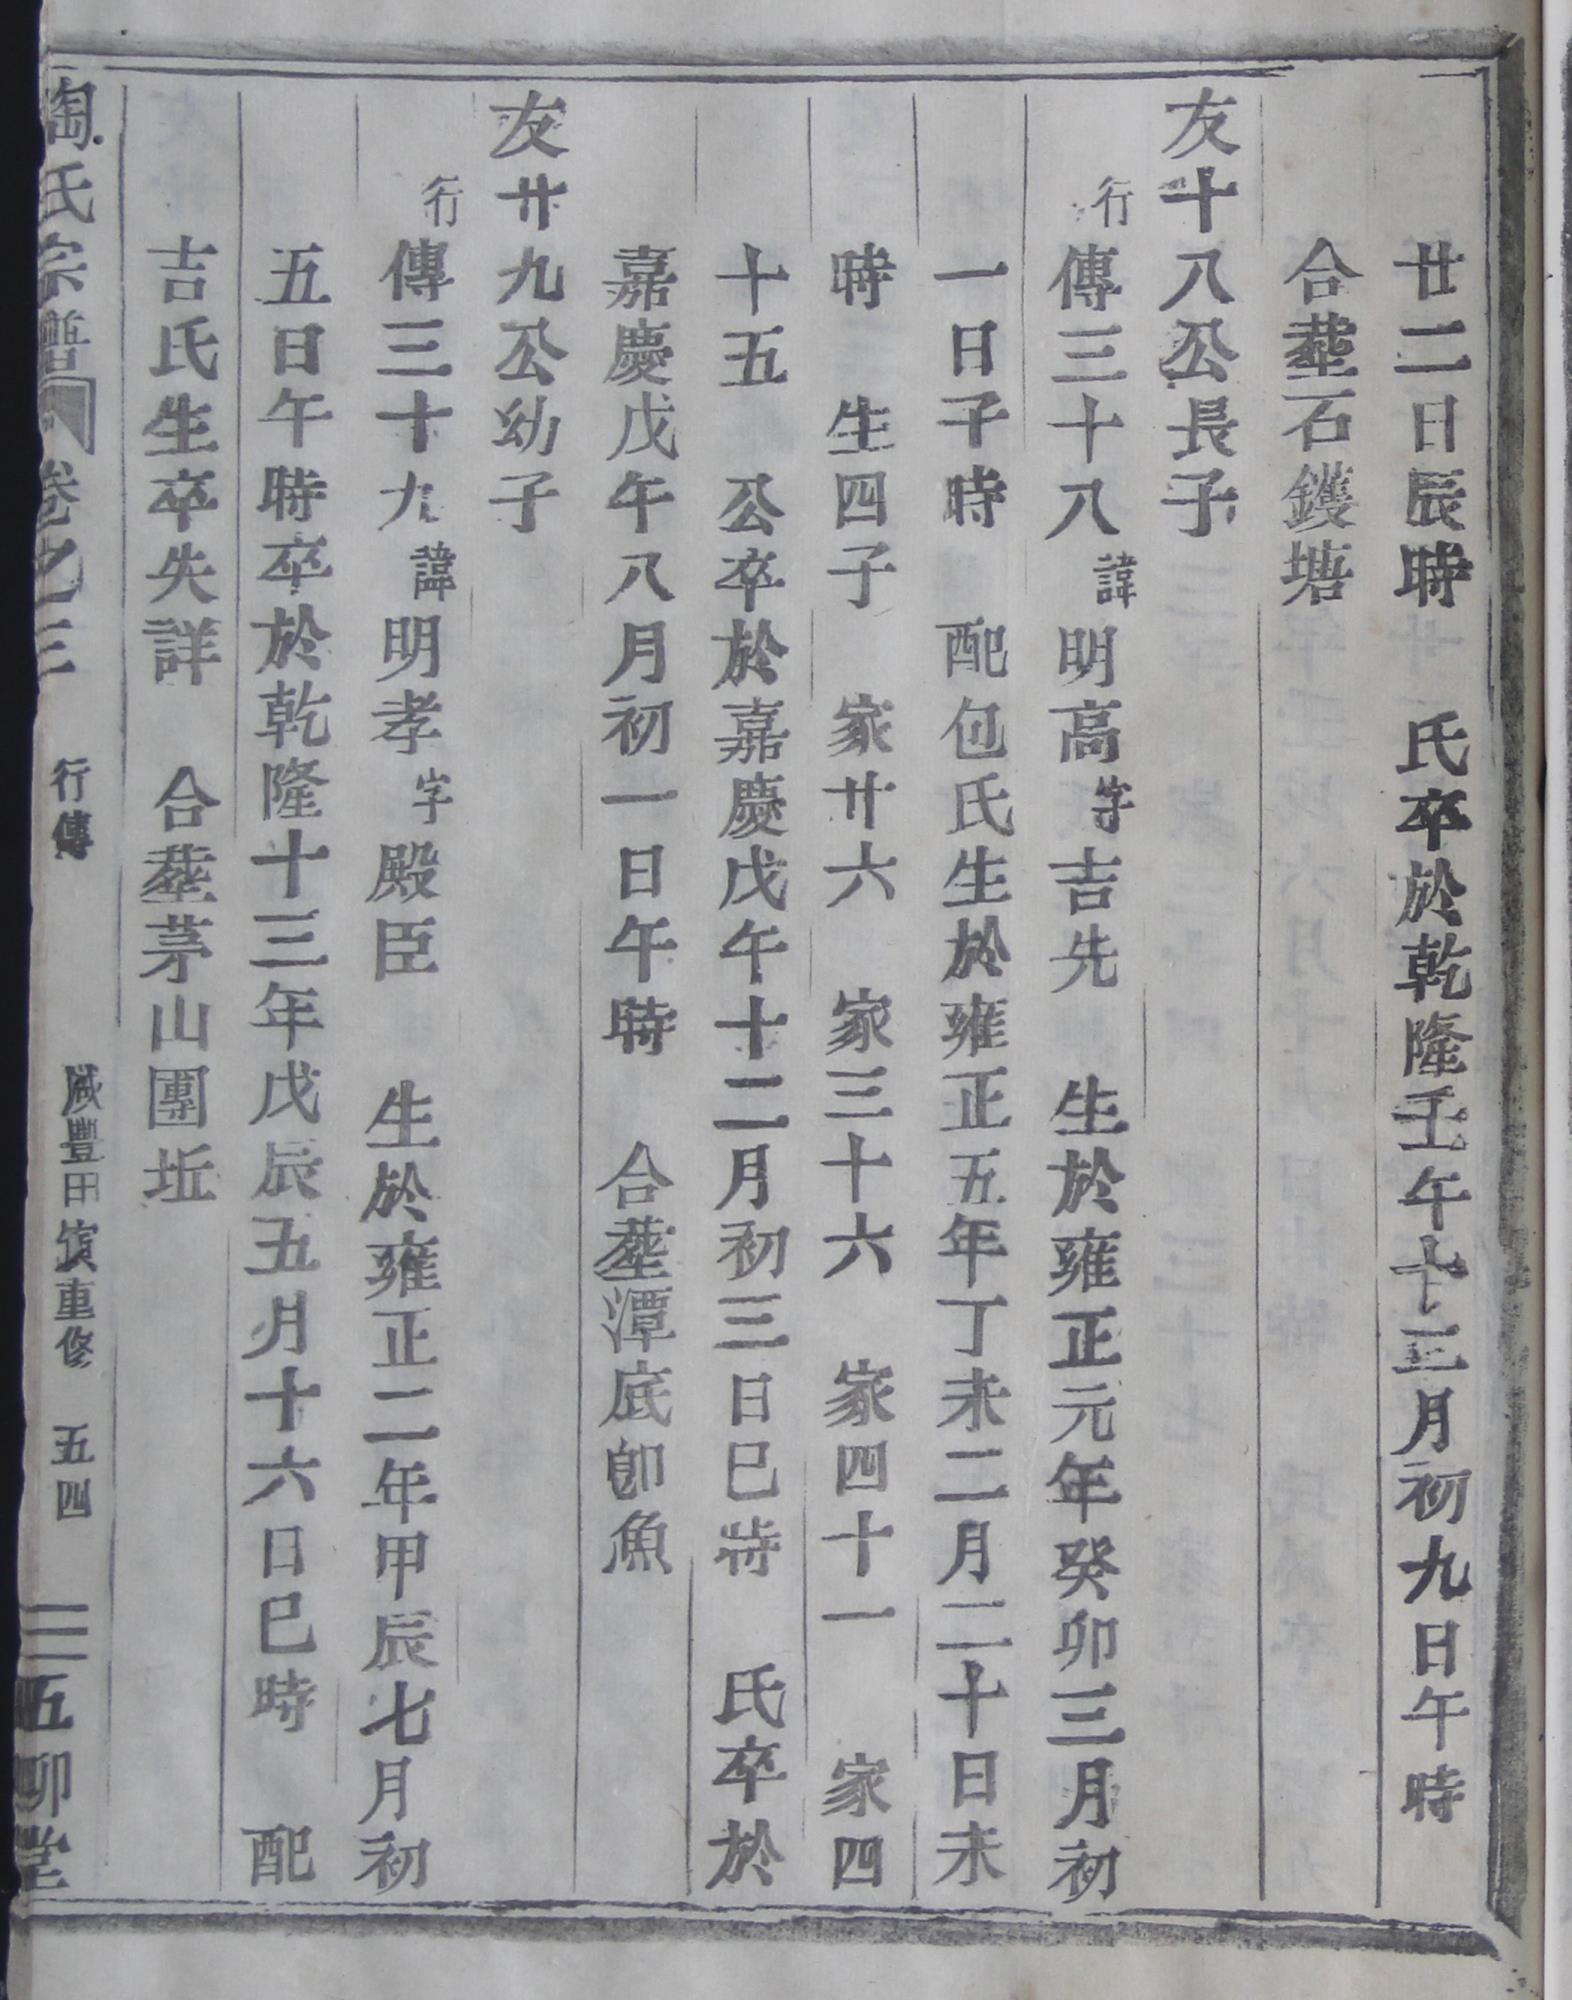 廿二日辰時　氏卒於乾隆壬午十三月初九日午時
合塟石鑊塘
友十八公長子
行傳三十八諱明高字吉先　生於雍正元年癸卯三月初
一日子時　配包氏生於雍正五年丁未二月二十日未
時　生四子　家廿六　家三十六　家四十一　家四
十五　公卒於嘉慶戊午十二月初三日巳時　氏卒於
嘉慶戊午八月初一日午時　合塟潭底卽魚
友廿九公幼子
行傳三十九諱明孝字殿臣　生於雍正二年甲辰七月初
五日午時卒於乾隆十三年戊辰五月十六日巳時　配
吉氏生卒失詳　合塟茅山團坵
陶氏宗譜　卷之三　行傳　咸豐甲寅重修　五四　五柳堂